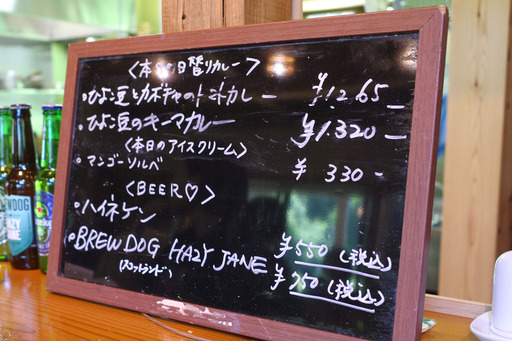 〈本日の日替りカレー〉
・ひよこ豆とカボチャのトマトカレー ¥1,265-
・ひよこ豆のキーマカレー ¥1,320-
〈本日のアイスクリーム〉
・マンゴーソルベ ¥330-
〈BEER♡〉
・ハイネケン ¥550(税込)
・BREW DOG HAZY JANE ¥750(税込)
(スコットランド)